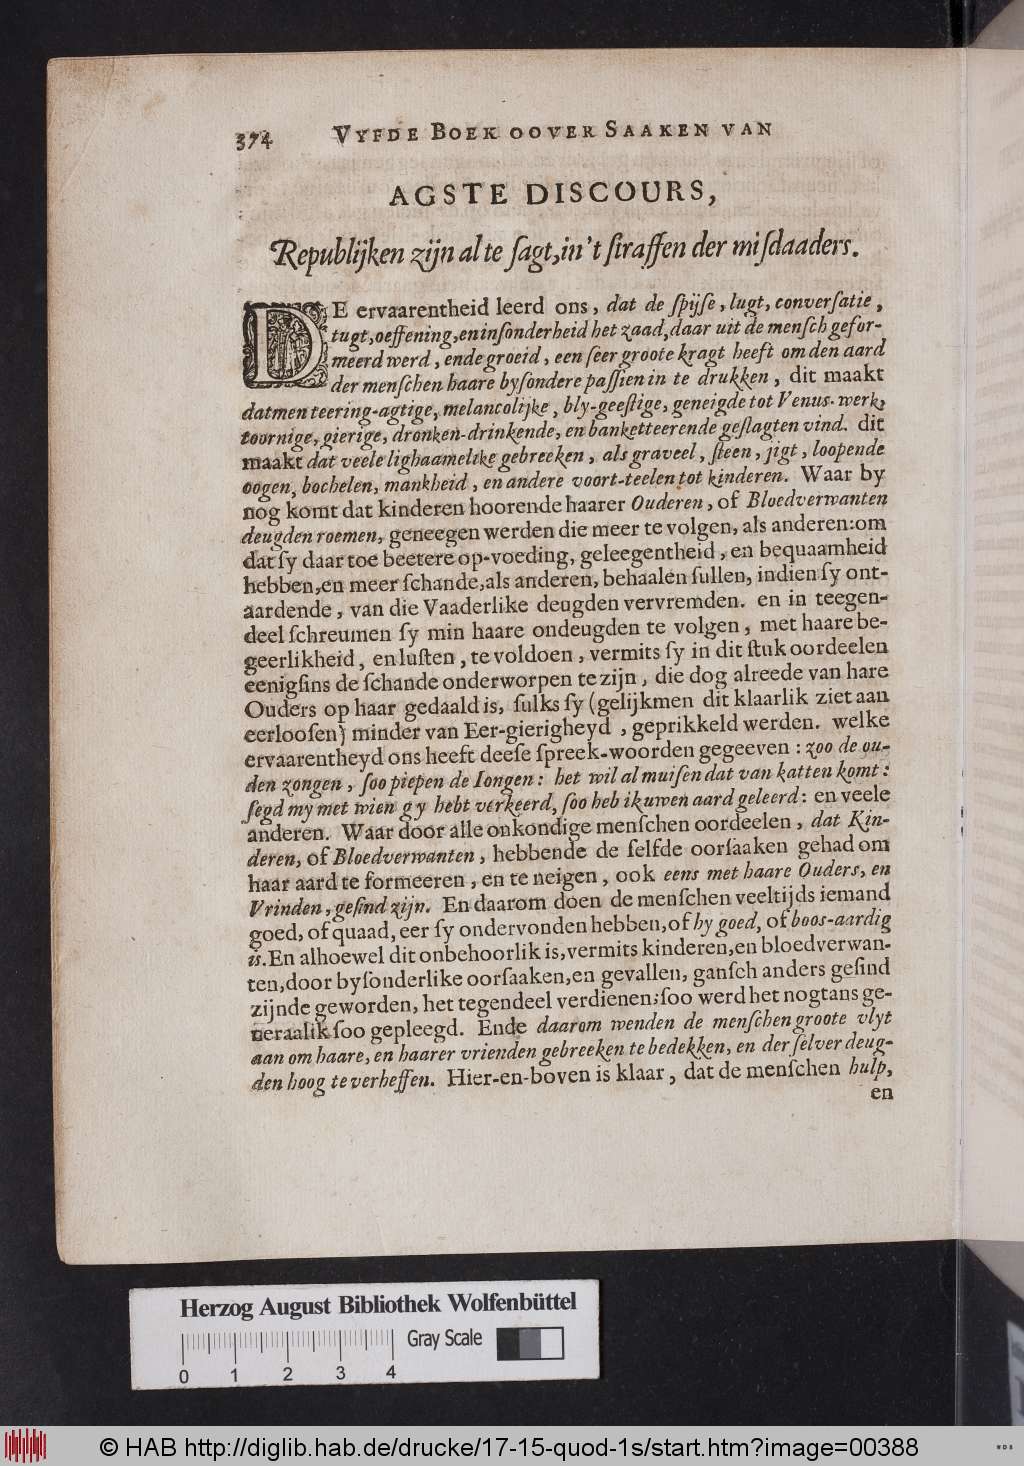 374 VYFDE BOEK OOVER SAAKEN VAN
AGSTE DISCOURS,
Republijken zijn al te ſagt, in't ſtraffen der miſdaaders.
DE ervaarentheid leerd ons, dat de ſpijſe, lugt, converſatie,
tugt, oeffening, en inſonderheid het zaad, daar uit de menſch gefor-
meerd werd, ende groeid, een ſeer groote kragt heeft om den aard
der menſchen haare byſondere paſſien in te drukken, dit maakt
datmen teering-agtige, melancolijke, bly-geeſtige, geneigde tot Venus-werk,
toornige, gierige, dronken-drinkende, en banketteerende geſlagten vind. dit
maakt dat veele lighaamelike gebreeken, als graveel, ſteen, jigt, loopende
oogen, bochelen, mankheid, en andere voort-teelen tot kinderen. Waar by
nog komt dat kinderen hoorende haarer Ouderen, of Bloedverwanten
deugden roemen, geneegen werden die meer te volgen, als anderen: om
dat ſy daar toe beetere op-voeding, geleegentheid, en bequaamheid
hebben, en meer ſchande, als anderen, behaalen ſullen, indien ſy ont-
aardende, van die Vaaderlike deugden vervremden. en in teegen-
deel ſchreumen ſy min haare ondeugden te volgen, met haare be-
geerlikheid, en luſten, te voldoen, vermits ſy in dit ſtuk oordeelen
eenigſins de ſchande onderworpen te zijn, die dog alreede van hare
Ouders op haar gedaald is, ſulks ſy (gelijkmen dit klaarlik ziet aan
eerlooſen) minder van Eer-gierigheyd, geprikkeld werden. welke
ervaarentheyd ons heeft deeſe ſpreek-woorden gegeeven: zoo de ou-
den zongen, ſoo piepen de Iongen: het wil al muiſen dat van katten komt:
ſegd my met wien gy hebt verkeerd, ſoo heb ik uwen aard geleerd: en veele
anderen. Waar door alle onkondige menſchen oordeelen, dat Kin-
deren, of Bloedverwanten, hebbende de ſelfde oorſaaken gehad om
haar aard te formeeren, en te neigen, ook eens met haare Ouders, en
Vrinden, geſind zijn. En daarom doen de menſchen veeltijds iemand
goed, of quaad, eer ſy ondervonden hebben, of hy goed, of boos-aardig
is. En alhoewel dit onbehoorlik is, vermits kinderen, en bloedverwan-
ten, door byſonderlike oorſaaken, en gevallen, ganſch anders geſind
zijnde geworden, het tegendeel verdienen; ſoo werd het nogtans ge-
neraalik ſoo gepleegd. Ende daarom wenden de menſchen groote vlyt
aan om haare, en haarer vrienden gebreeken te bedekken, en der ſelver deug-
den hoog te verheffen. Hier-en-boven is klaar, dat de menſchen hulp,
en
Herzog August Bibliothek Wolfenbüttel
Gray Scale
0 1 2 3 4
© HAB http://diglib.hab.de/drucke/17-15-quod-1s/start.htm?image=00388